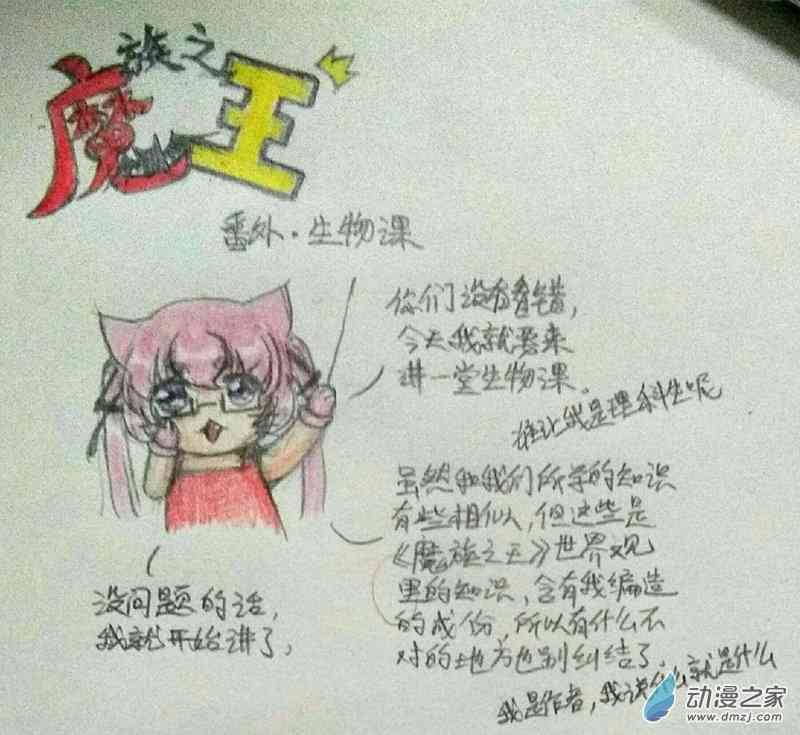 魔族之王
番外·生物课
你们没有看错，
今天我就要来
讲一堂生物课。
谁让我是理科生呢
虽然和我们所学的知识
有些相似，但这些是
《魔族之王》世界观
里的知识，含有我编造
的成份，所以有什么不
对的地方也别纠结了。
我是作者，我说什么就是什么
没问题的话，
我就开始讲了，
动漫之家
www.dmzj.com